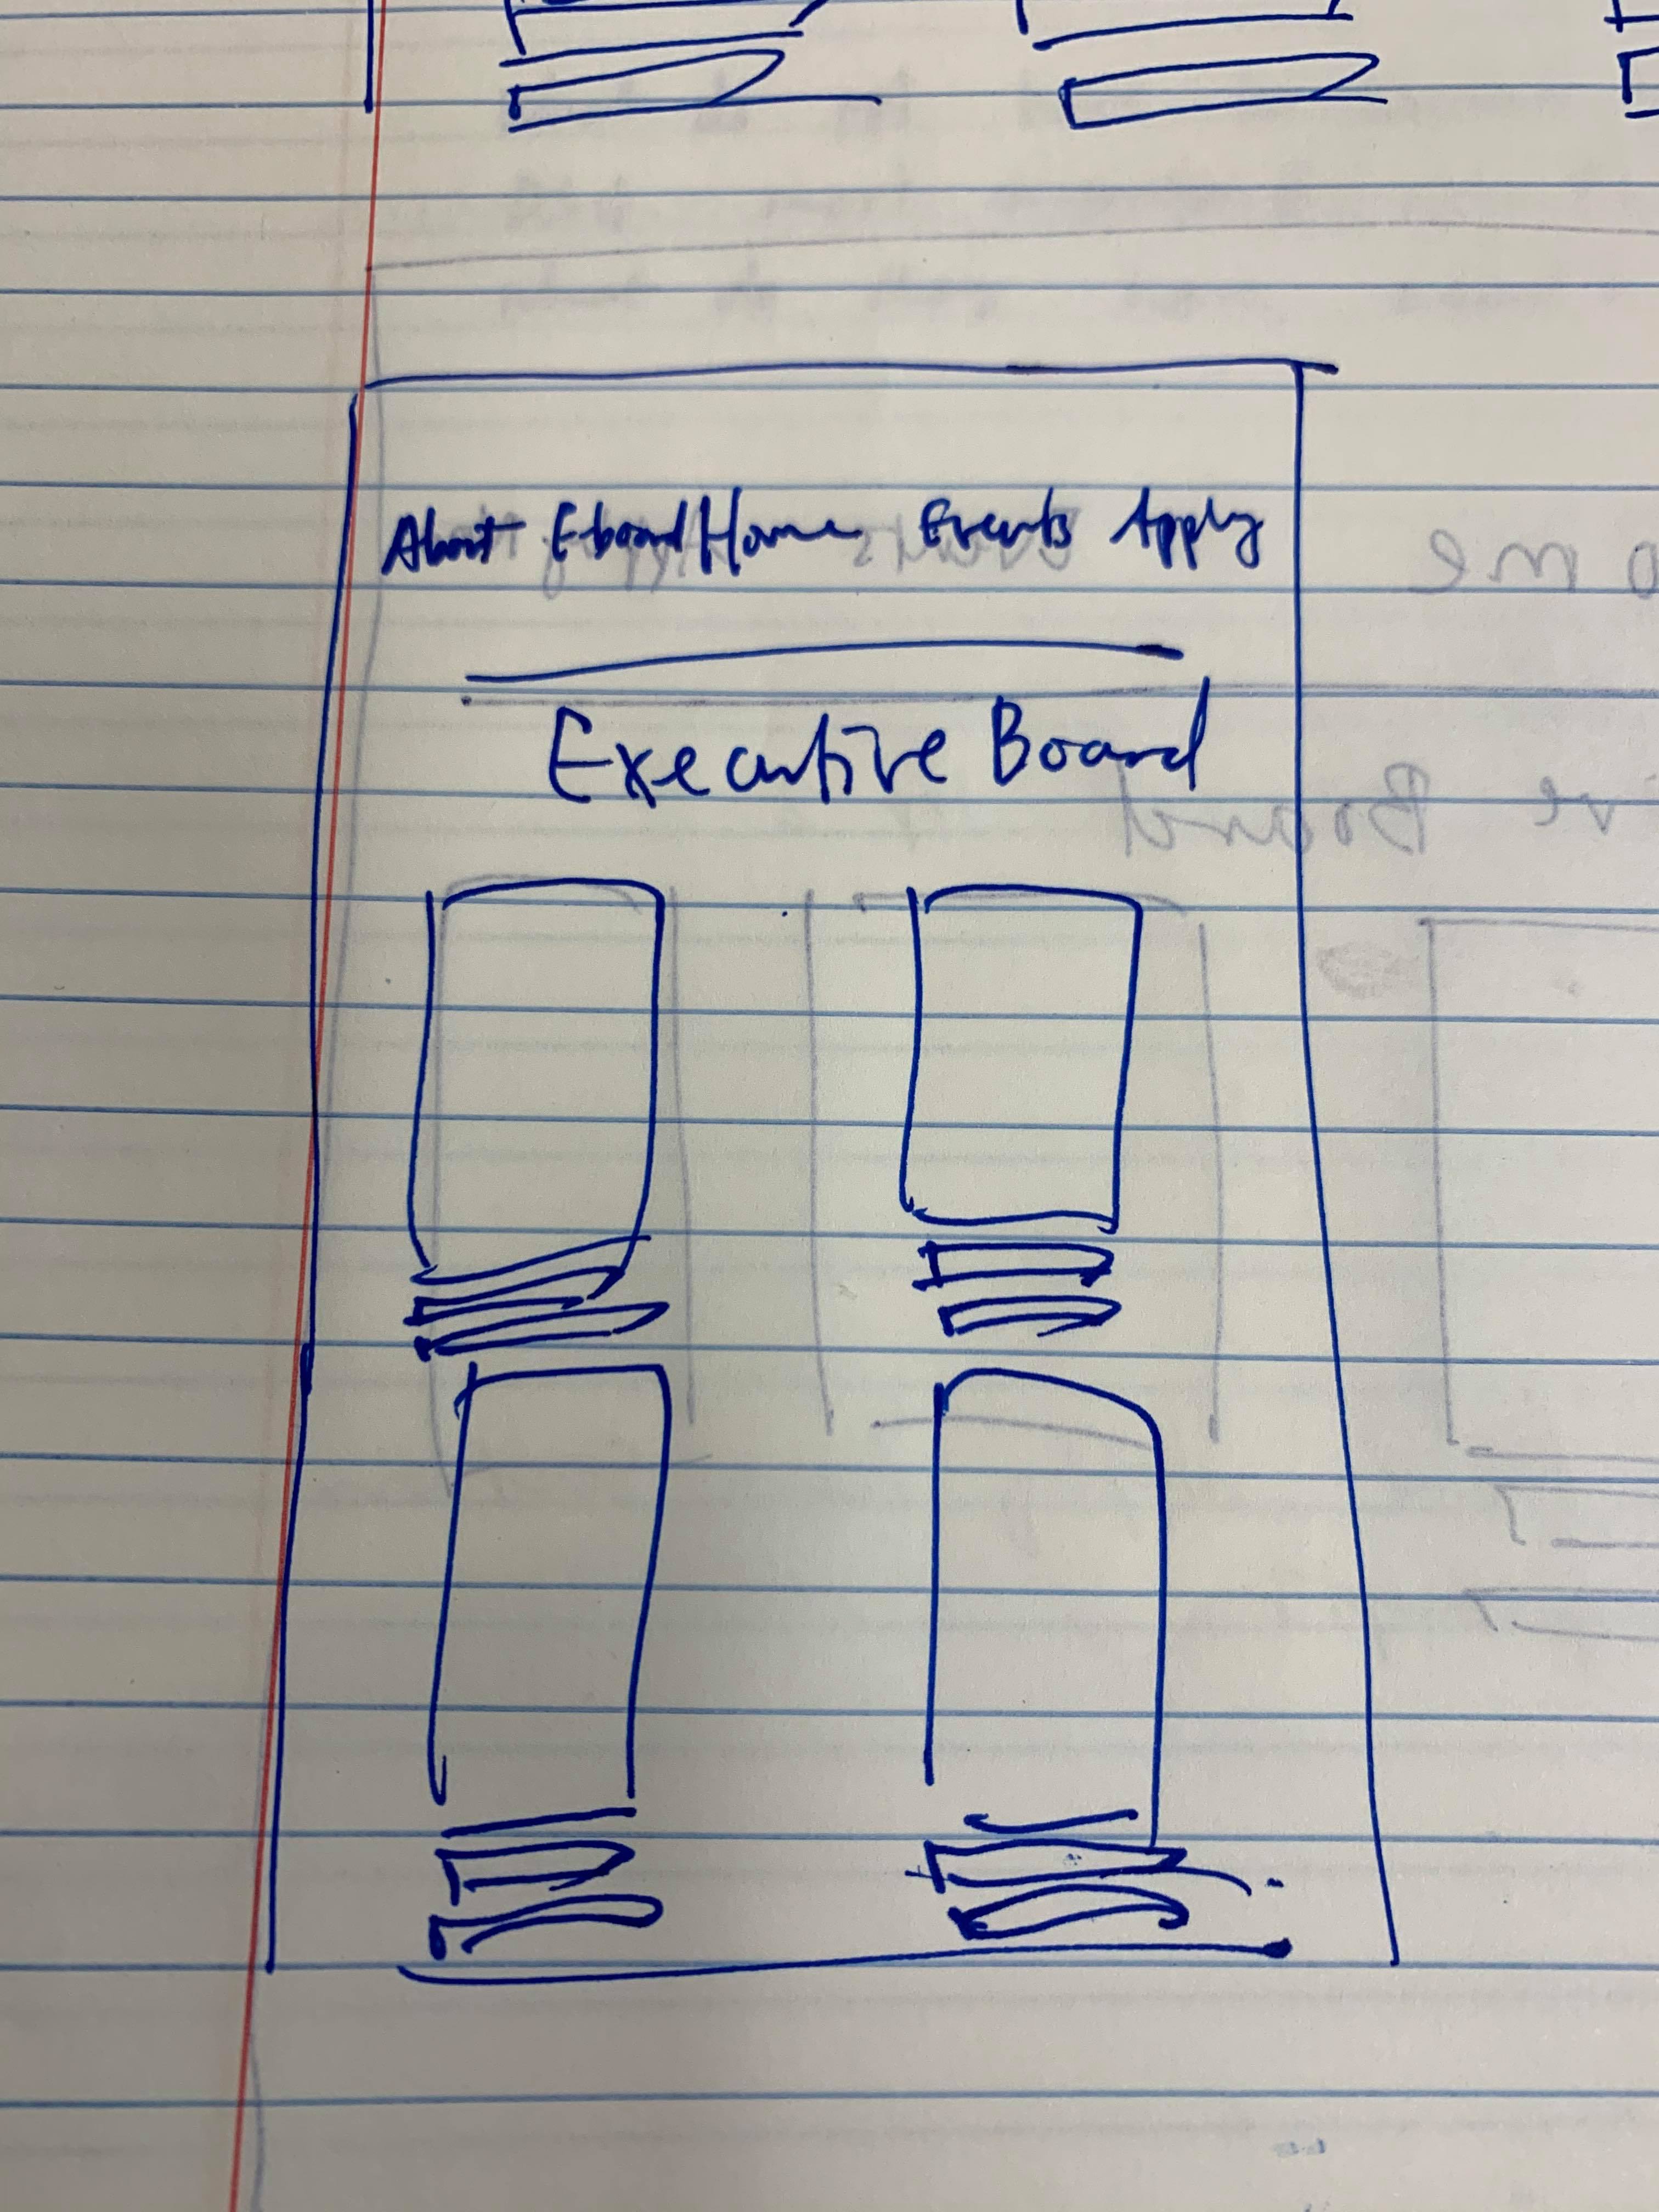 About Eboard Home Events Apply
Executive Board